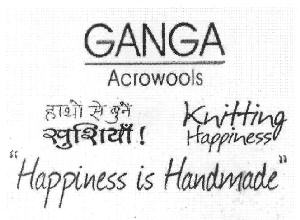 GANGA
Acrowools
हाथों से बुनें
खुशियाँ !
Knitting
Happiness
"Happiness is Handmade"